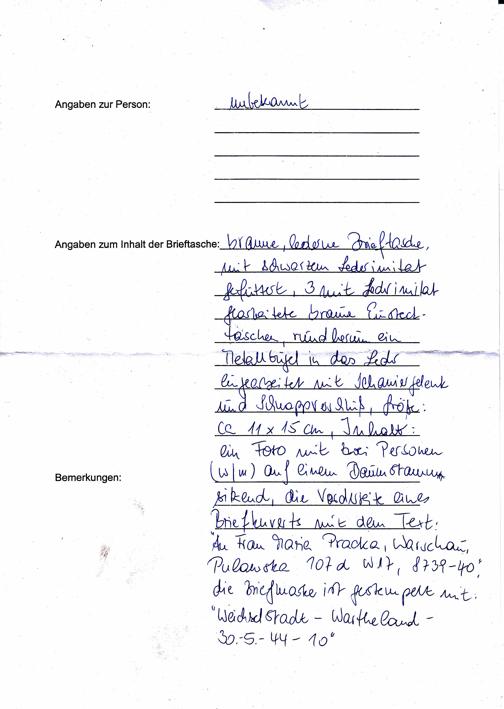 Angaben zur Person: unbekannt
Angaben zum Inhalt der Brieftasche: braune, lederne Brieftasche,
mit schwarzem Lederimitat
gefüttert, 3 mit Lederimitat
gearbeitete braune Einsteck-
taschen, rundherum ein
Metallbügel in das Leder
eingearbeitet mit Scharniergelenk
und Schnappverschluß, Größe:
ca 11 x 15 cm, Inhalt:
ein Foto mit zwei Personen
(w/m) auf einem Baumstamm
Bemerkungen:
sitzend, die Vorderseite eines
Briefkuverts mit dem Text:
"An Frau Maria Pracka, Warschau,
Pulawska 107 d W17, 8739-40",
die Briefmarke ist gestempelt mit:
"Weichselstadt - Wartheland -
30.-5.-44 - 10"